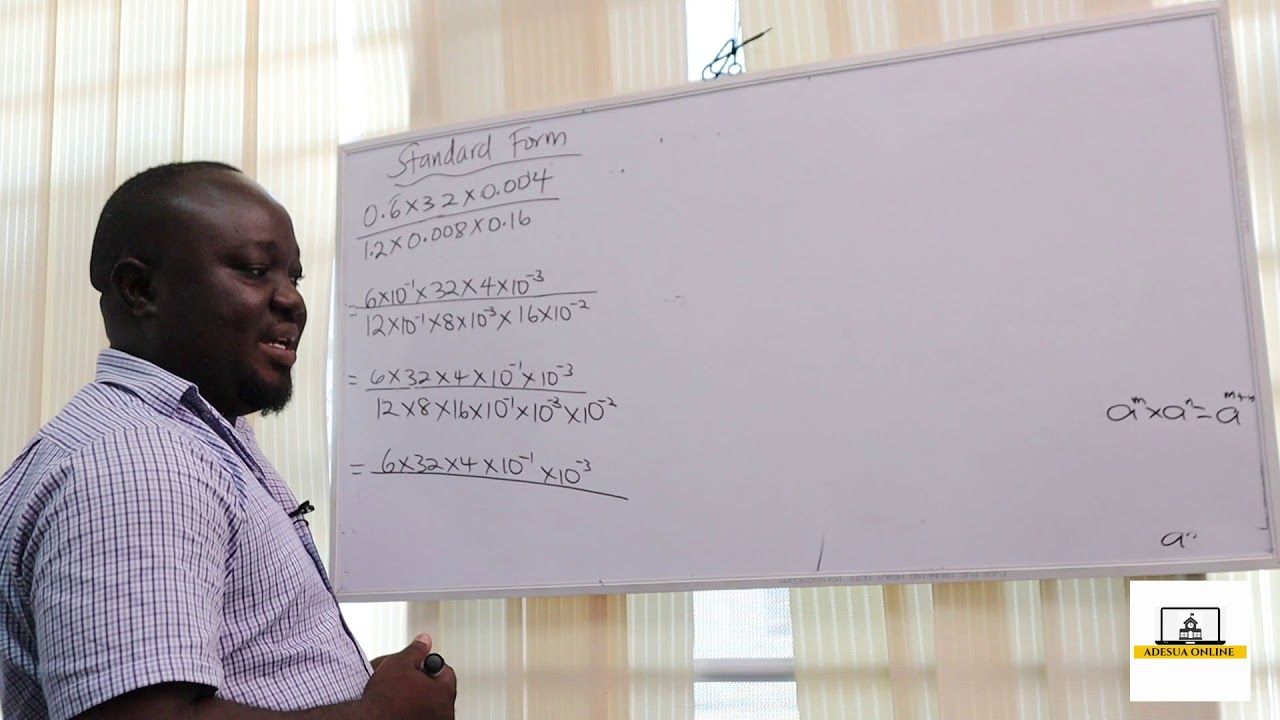 Standard Form
0.6×32×0.004
1.2×0.008×0.16
= 6×10⁻¹×32×4×10⁻³
12×10⁻¹×8×10⁻³×16×10⁻²
= 6×32×4×10⁻¹×10⁻³
12×8×16×10⁻¹×10⁻³×10⁻²
= 6×32×4×10⁻¹×10⁻³
aᵐ×aⁿ=aᵐ⁺ⁿ
a
ADESUA ONLINE